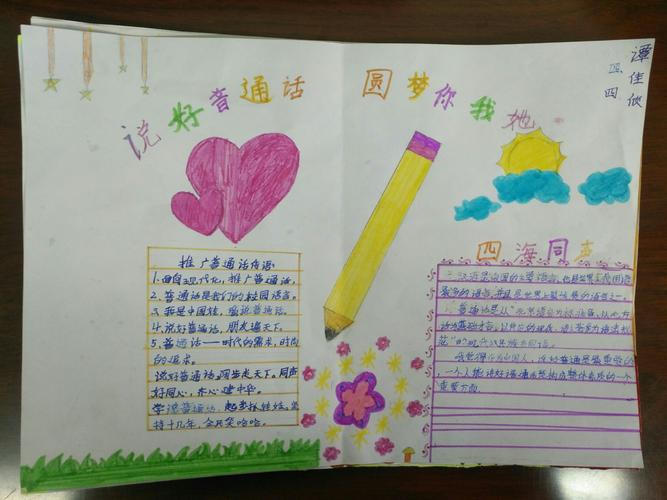 说好普通话 圆梦你我她
四四
谭佳欣
推广普通话标语:
1.面向现代化,推广普通话。
2.普通话是我们的校园语言。
3.我是中国娃,爱说普通话。
4.说好普通话,朋友遍天下。
5.普通话——时代的需求,时尚
的追求。
说好普通话,阔步走天下。同声
好同心,齐心建中华。
学说普通话,起步抓娃娃。坚
持十几年,全民笑哈哈。
四海同声
汉语是中国的主要语言,也是世界上使用
最多的语言,并且是世界上最发展的语言之一。
普通话是以"北京语音为标准音,以北方
话为基础方言,以典范的现代白话文著作为语法规
范"的现代汉民族共同语。
我觉得作为中国人,说好普通话是最重要的,
一个人能说好普通话是构成整体素质的一个
重要方面。